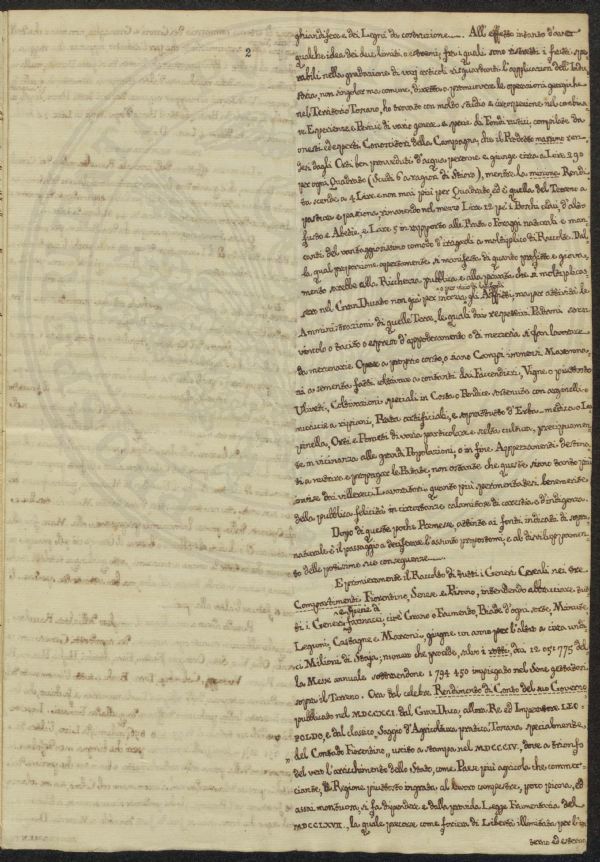 2
ghiandifere e dei Legni da costruzione...... All'effetto intanto d'aver
qualche idea dei due limiti o estremi, fra i quali sono ristretti i frutti spe-
rabili nella gradazione di varj articoli risguardanti l'applicazion dell'Indu-
stria, non singolar ma comune, diretta a promuovere le operazioni georgiche
nel Territorio Toscano, ho trovato con molto studio e circospezione nel combina-
re Esperienze e Perizie di vario genere e specie di Fondi rustici, compilate da
onesti ed esperti Conoscitori della Campagna, che il Prodotto massimo ren-
desi dagli Orti ben proveduti d'acqua perenne e giunge circa a Lire 290
per ogni Quadrato (Scudi 6 a ragion di Stioro), mentre la minima Rendi-
ta scende a 4 Lire e non mai più per Quadrato ed è quella del Terreno a
pastura e pasciona, rimanendo nel mezzo Lire 12 pe' i Boschi cedui, d'alto
fusto e Abetie, e Lire 5 in rapporto alle Prata o Foraggi naturali e man-
canti del vantaggiosissimo comodo d'irrigarli a moltiplico di Raccolte. Dal-
la qual proporzione apertamente si manifesta di quanto profitto e giova-
mento sarebbe alla Ricchezza pubblica e alla privata che si moltiplicas-
sero nel Gran Ducato non già per incuria gli Affitti, ma per attività le
Amministrazioni di quelle Terre, le quali dai rispettivi Padroni senza
vincolo o tacito o espresso d'appoderamento o di mezzeria si fan lavorare
da mercenarie Opere a proprio conto, o siano Campi
a sementa fatti coltivare a contanti dai Faccendieri, Vigne o piuttosto
Uliveti, Coltivazioni speciali in Costa o Pendice sostenuta con arginelli o
muricce a ripiani, Prata artificiali, e soprattutto d'Erba medica o Lu-
pinella, Orti e Pometi di varia particolare e scelta cultura, precipuamen-
te in vicinanza alle grandi Popolazioni, o in fine Appezzamenti destina-
ti a nutrire e propagar le Patate, non ostante che queste siano tanto più
da' villerecci Lavoratori, quanto più sperimentatesi benemerite
della pubblica felicità in circostanze calamitose di carestia e d'indigenza.
Dopo di queste poche Premesse, attinte ai fonti indicati di sopra,
naturale è il passaggio a diciferare l'assunto propostomi, e al distrigo promes-
so delle potissime sue conseguenze......
E primieramente il Raccolto di tutti i Generi Cereali nei tre
Compartimenti Fiorentino, Senese e Pisano, intendendo abbracciare tut-
e Specie di
ti i Generi farracei, cioè Grano o Frumento, Biade d'ogni sorte, Minute
Legumi, Castagne e Marroni, giugne un anno per l'altro a circa undi-
ci Milioni di Staja; numero che procede, salvi i rotti, da 12 051 775 del-
la Messe annuale sottraendone 1 794 450 impiegato nel Seme gettatovi
sopra il Terreno. Ora dal celebre Rendimento di Conto del suo Governo
pubblicato nel MDCCXCI dal Gran Duca, allora Re ed Imperatore LEO-
POLDO, e dal classico „Saggio d'Agricoltura pratica Toscana specialmente
„ del Contado Fiorentino„ uscito a stampa nel MDCCCIV, dove a trionfo
del vero l'arricchimento dello Stato, come Paese più agricola che commer-
ciante, di Regione piuttosto ingrata al lavoro campestre, poco piana, ed
assai montuosa, si fa dipendere e dalla provida Legge Frumentaria del
MDCCLXVII, la quale percorse come foriera di Libertà illimitata per l'in-
terno ed esterno